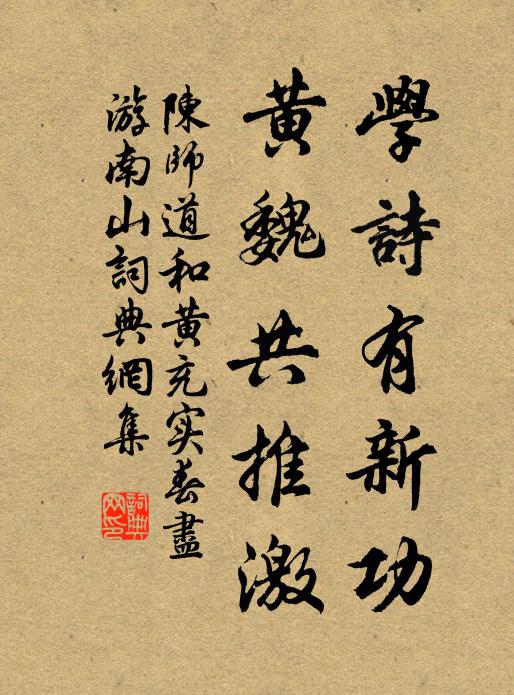 學詩有新功
黃魏共推激
陳師道和黃充实春盡
游南山詞典網集
詞典
网印